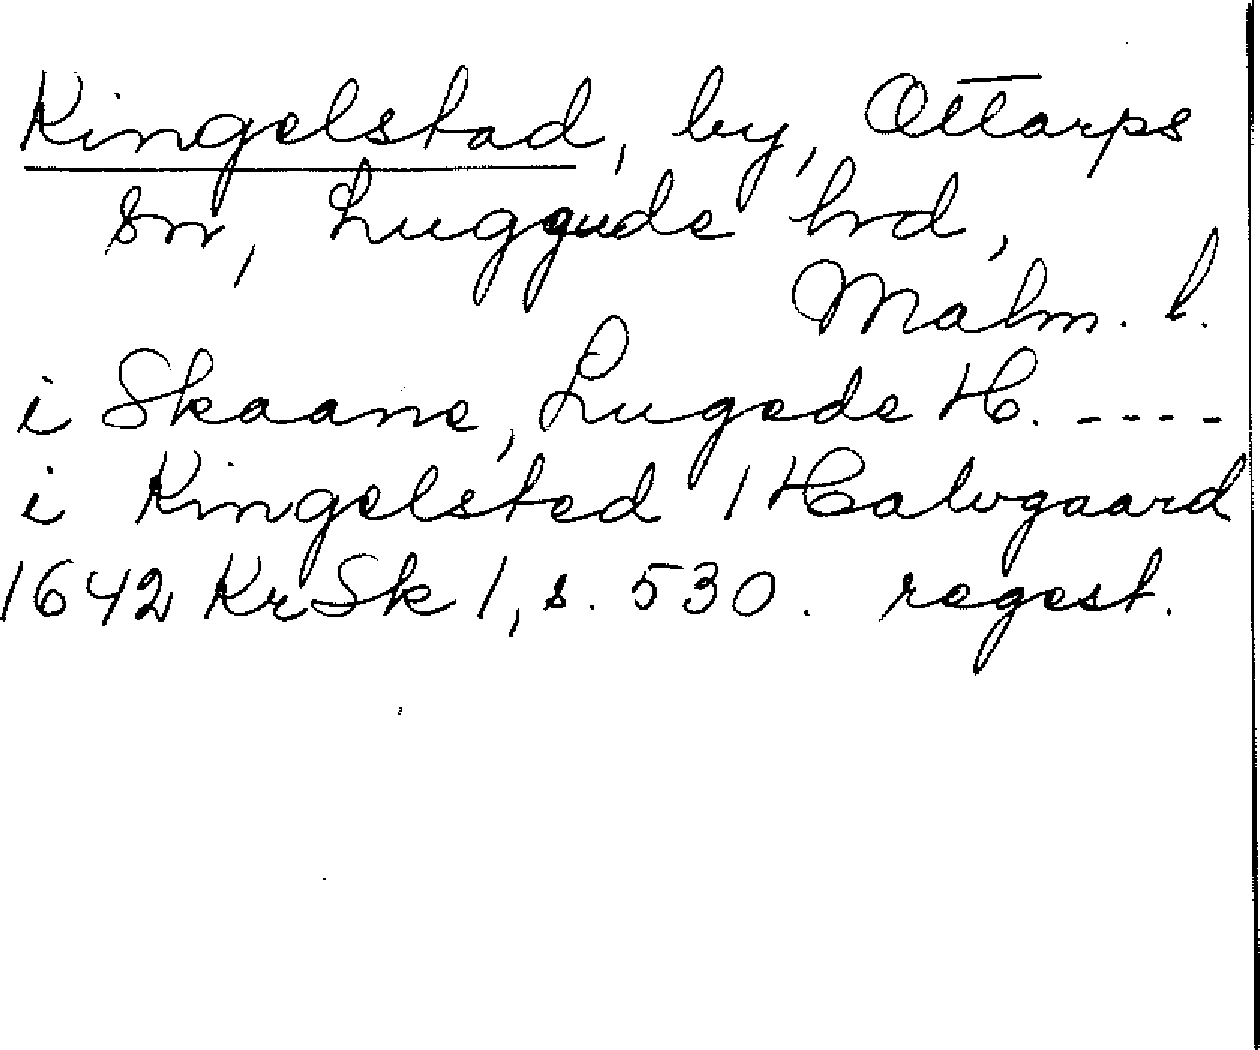 Kingelstad, by, Ottarps
sn, Luggude hrd,
Malm. l.
i Skaane, Lugede H. ----
i Kingelsted 1 Halvgaard
1642 KrSk 1, s. 530. regest.